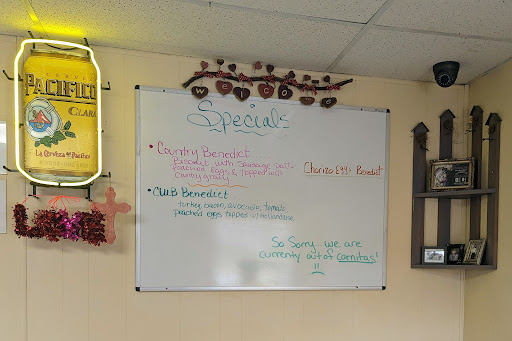 WELCOME
CERVEZA
PACIFICO
CLARA
La Cerveza del Pacifico
LOVE
Specials
• Country Benedict
Benedict with Sausage Patty
Poached Eggs & topped with
Country gravy
Chorizo Egg Benedict
• CLUB Benedict
turkey, bacon, avocado, tomato
poached eggs topped w/ hollandaise
So Sorry... we are
currently out of Carnitas!